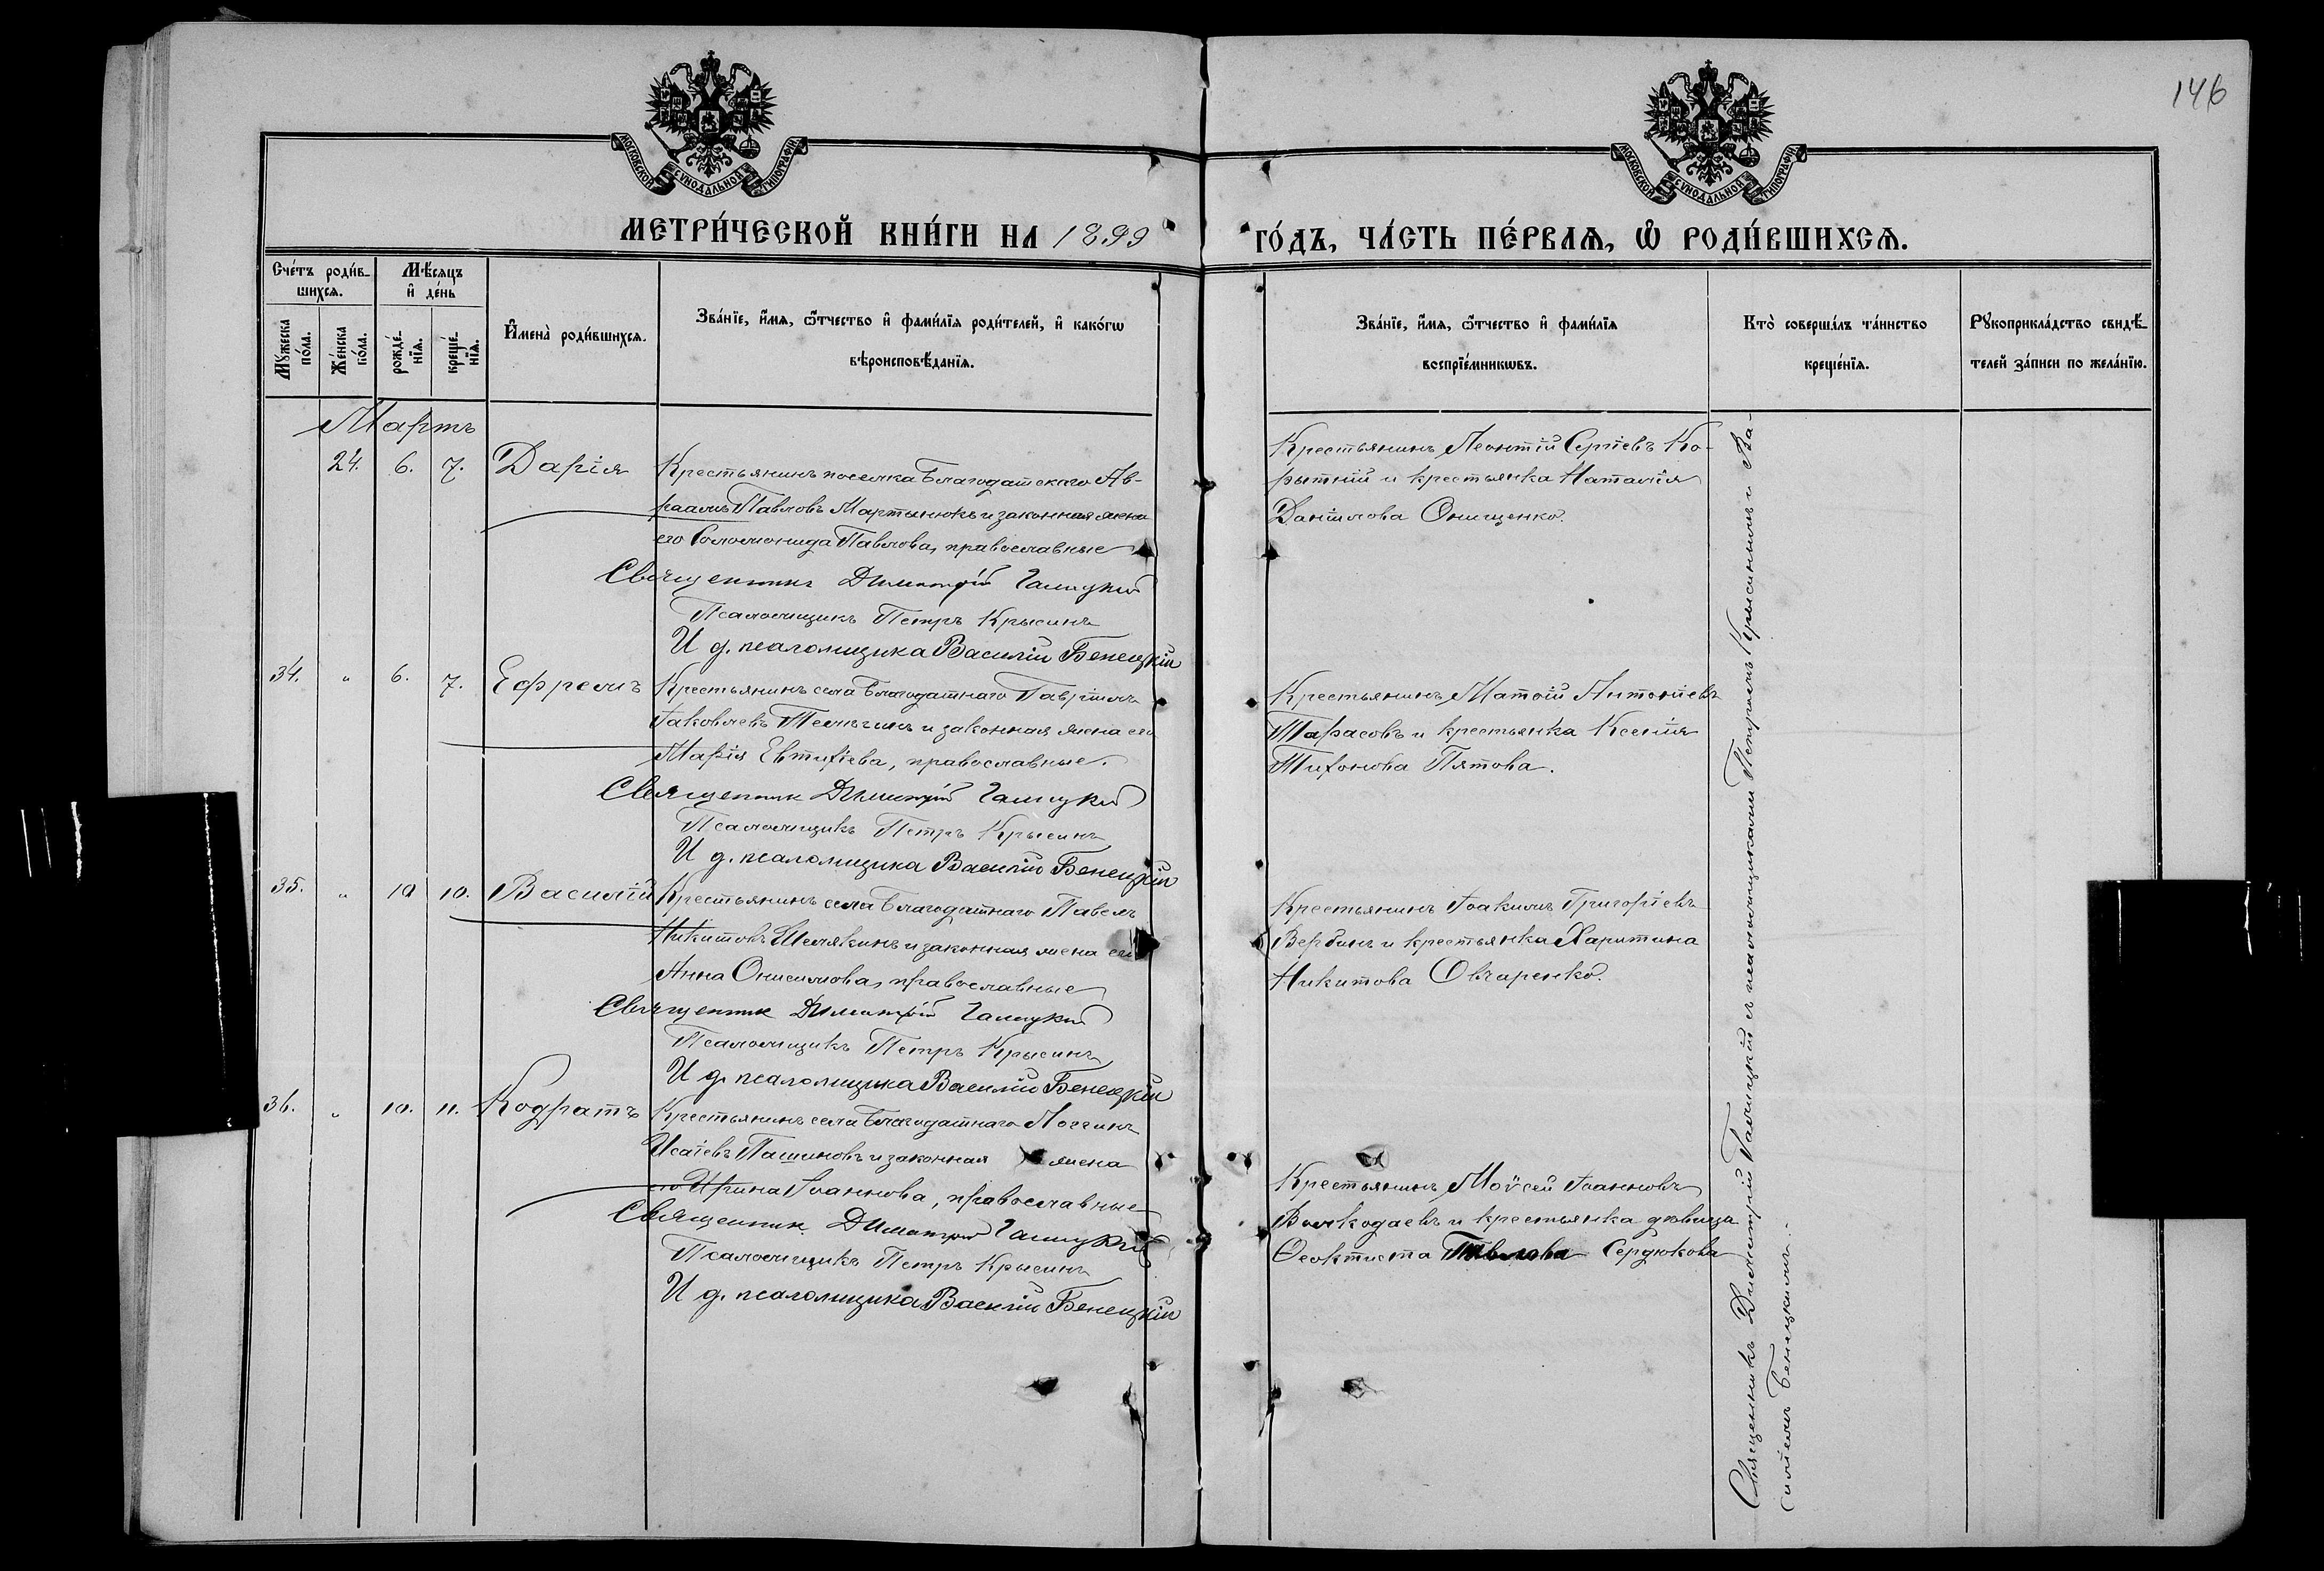 146
МОСКОВСКОЙ СУНОДАЛЬНОЙ ТИПОГРАФІИ
МОСКОВСКОЙ СУНОДАЛЬНОЙ ТИПОГРАФІИ
МЕТРИ́ЧЕСКОЙ КНИ́ГИ НА 1899 ГО́ДЪ, ЧА́СТЬ ПЕ́РВАѦ, Ѽ РОДИ́ВШИХСѦ.
Сче́тъ роди́в-
шихсѧ.
Мꙋ́жеска по́ла.
Же́нска по́ла.
Мѣ́сѧцъ
и҆ де́нь
рожде́-
нїѧ.
креще́-
нїѧ.
И҆мена̀ роди́вшихсѧ.
Зва́нїе, и҆́мѧ, ѻ҆́тчество и҆ фами́лїѧ роди́телей, и҆ како́гѡ
вѣроисповѣ́данїѧ.
Зва́нїе, и҆́мѧ, ѻ҆́тчество и҆ фами́лїѧ
воспрїе́мникѡвъ.
Кто̀ соверша́лъ та́инство
креще́нїѧ.
Рꙋкоприкла́дство свидѣ́-
телей за́писи по жела́нїю.
Мартъ
24. 6. 7. Дарія
Крестьянинъ поселка Благодатскаго Ав-
раамъ Павловъ Мартынюкъ и законная жена
его Соломонида Павлова, православные
Священникъ Димитрій Галицкій
Псаломщикъ Петръ Крысинъ
И д. псаломщика Василій Бенецкій
Крестьянинъ Леонтій Сергіевъ Ко-
рытній и крестьянка Наталія
Даніилова Онищенко.
34. " 6. 7. Ефремъ
Крестьянинъ села Благодатнаго Гавріилъ
Іаковлевъ и законная жена его
Марія Евтихіева, православные.
Священник Димитрій Галицкій
Псаломщикъ Петръ Крысинъ
И д. псаломщика Василій Бенецкій
Крестьянинъ Матѳій Антоніевъ
Тарасовъ и крестьянка Ксенія
Тихонова Пятова.
35. " 10 10. Василій
Крестьянинъ села Благодатнаго Павелъ
Никитовъ Шелякинъ и законная жена его
Анна Онисимова, православные
Священник Димитрій Галицкій
Псаломщикъ Петръ Крысинъ
И д. псаломщика Василій Бенецкій
Крестьянинъ Іоакимъ Григоріевъ
Вербинъ и крестьянка Харитина
Никитова Овчаренко.
36. " 10. 11. Кодратъ
Крестьянинъ села Благодатнаго Логгинъ
Исаіевъ Пашиновъ и законная жена
его Ирина Іоаннова, православные
Священник Димитрій Галицкій
Псаломщикъ Петръ Крысинъ
И д. псаломщика Василій Бенецкій
Крестьянинъ Моѵсей Іоанновъ
Волкодаевъ и крестьянка дѣвица
Ѳеоктиста Павлова Сердюкова
Священникъ Димитрій Галицкій съ псаломщиками Петромъ Крысинымъ и Ва-
силіемъ Бенецкимъ.